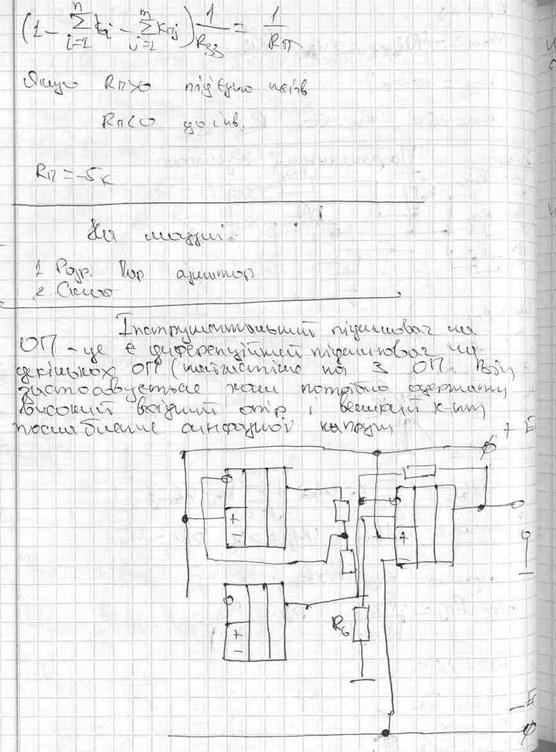 (1 - Σ_{i=1}^{n} k_i - Σ_{j=1}^{m} k_{nj}) 1/R_зз = 1/R_п
Якщо Rп>0 під'єдн
Rп<0 до інв.
Rп = -5к
На
1 Розр. Пар
2
Інструментальний підсилювач на
ОП - це є диференційний підсилювач на
декількох ОП (найчастіше на 3 ОП. Він
застосовується коли потрібно одержати
високий вхідний опір і великий к-нт
послаблення синфазної напруги
+ E
+
-
+
+
-
R6
- E